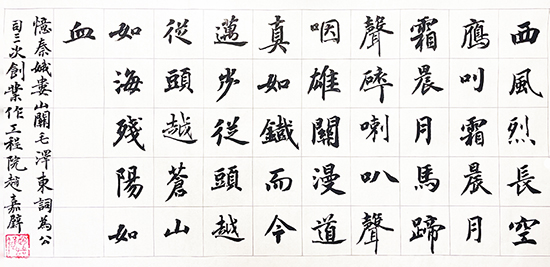 西風烈長空
鴈叫霜晨月
霜晨月馬蹄
聲碎喇叭聲
咽雄關漫道
真如鐵而今
邁步從頭越
從頭越蒼山
如海殘陽如
血
憶秦娥婁山關毛澤東詞為公
司三次創業作工程院趙嘉